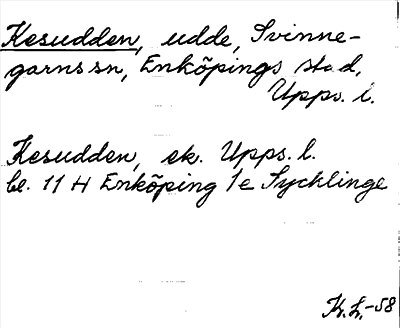 Kesudden, udde, Svinne-
garns sn, Enköpings stad,
Upps. l.
Kesudden, ek. Upps. l.
bl. 11 H Enköping 1e Sycklinge
K.L.-58